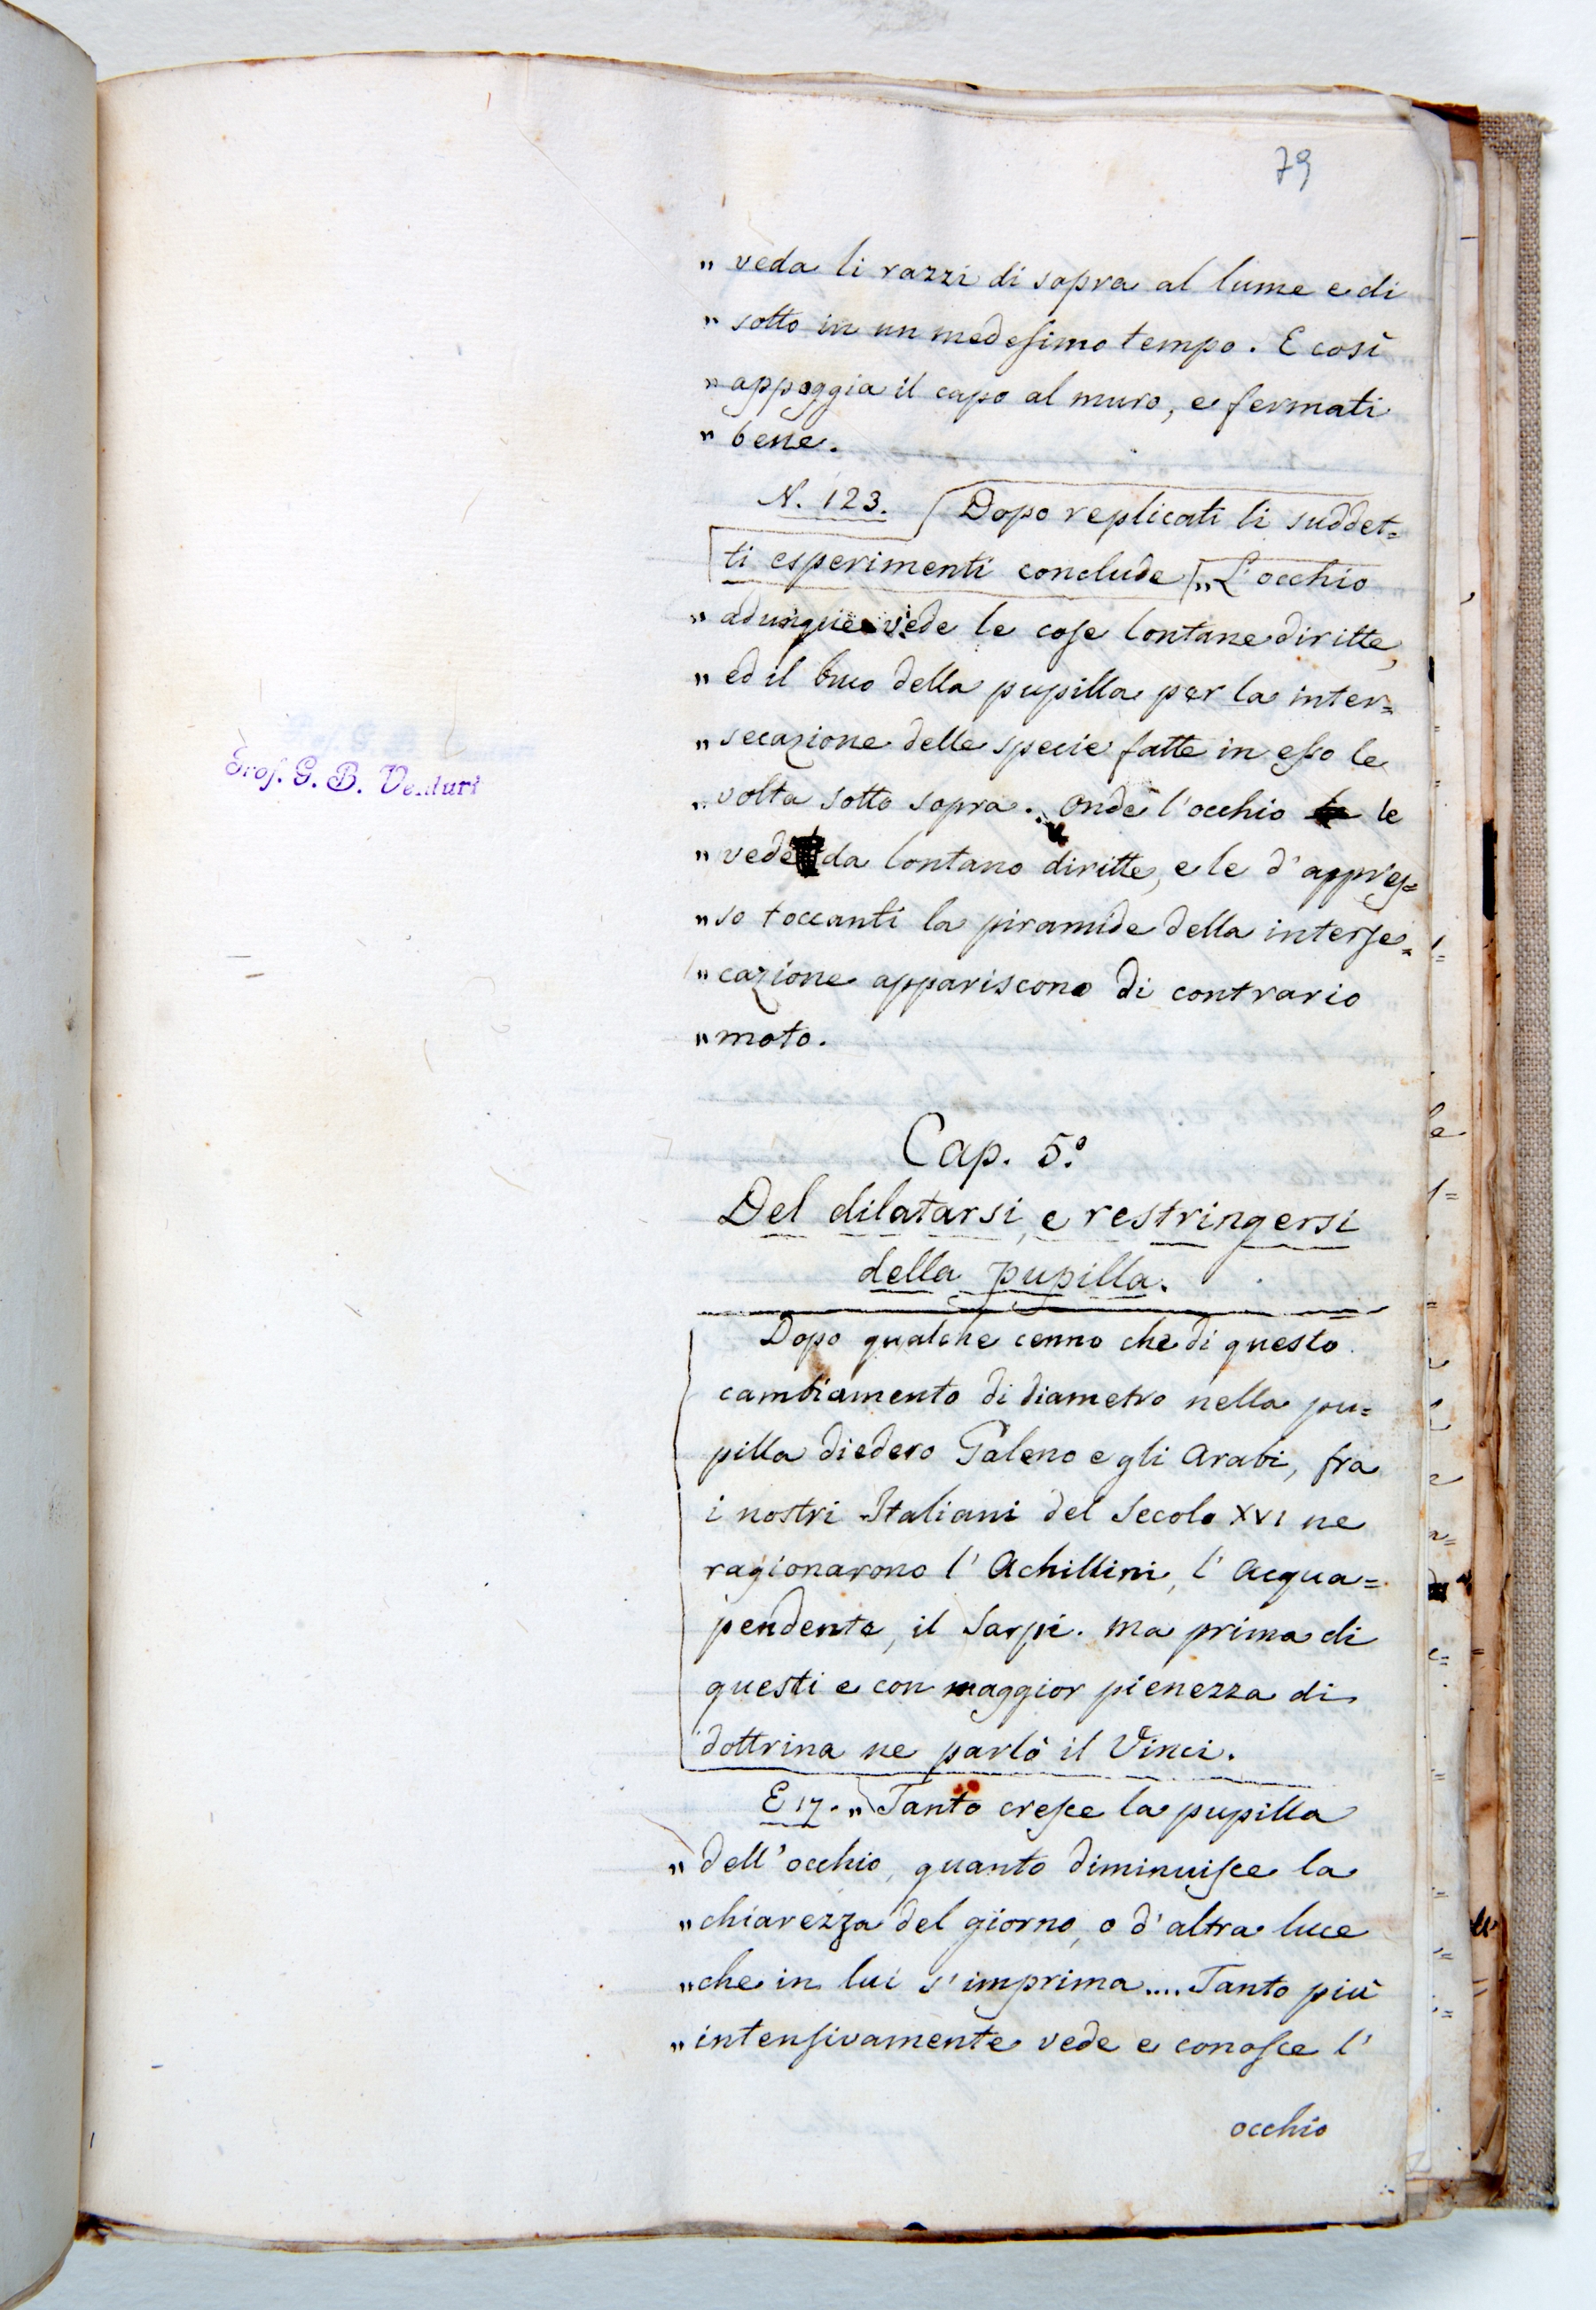 79
„ veda li razzi di sopra al lume e di
„ sotto in un medesimo tempo. E così
„ appoggia il capo al muro, e fermati
„ bene.
N. 123. Dopo replicati li suddet=
ti esperimenti conclude „ L'occhio
„ adunque vede le cose lontane diritte,
„ ed il buco della pupilla per la inter=
„ secazione delle specie fatte in esso le
„ volta sotto sopra. Onde l'occhio le
„ vede da lontano diritte, e le d'appres=
„ so toccanti la piramide della interse=
„ cazione appariscono di contrario
„ moto.
Prof. G. B. Venturi
Cap. 5.º
Del dilatarsi, e restringersi
della pupilla.
Dopo qualche cenno che di questo
cambiamento di diametro nella pu=
pilla diedero Galeno e gli Arabi, fra
i nostri Italiani del Secolo XVI ne
ragionarono l'Achillini, l'Acqua=
pendente, il Sarpi. Ma prima di
questi e con maggior pienezza di
dottrina ne parlò il Vinci.
E 17. „ Tanto cresce la pupilla
„ dell'occhio, quanto diminuisce la
„ chiarezza del giorno, o d'altra luce
„ che in lui s'imprima.... Tanto più
„ intensivamente vede e conosce l'
occhio